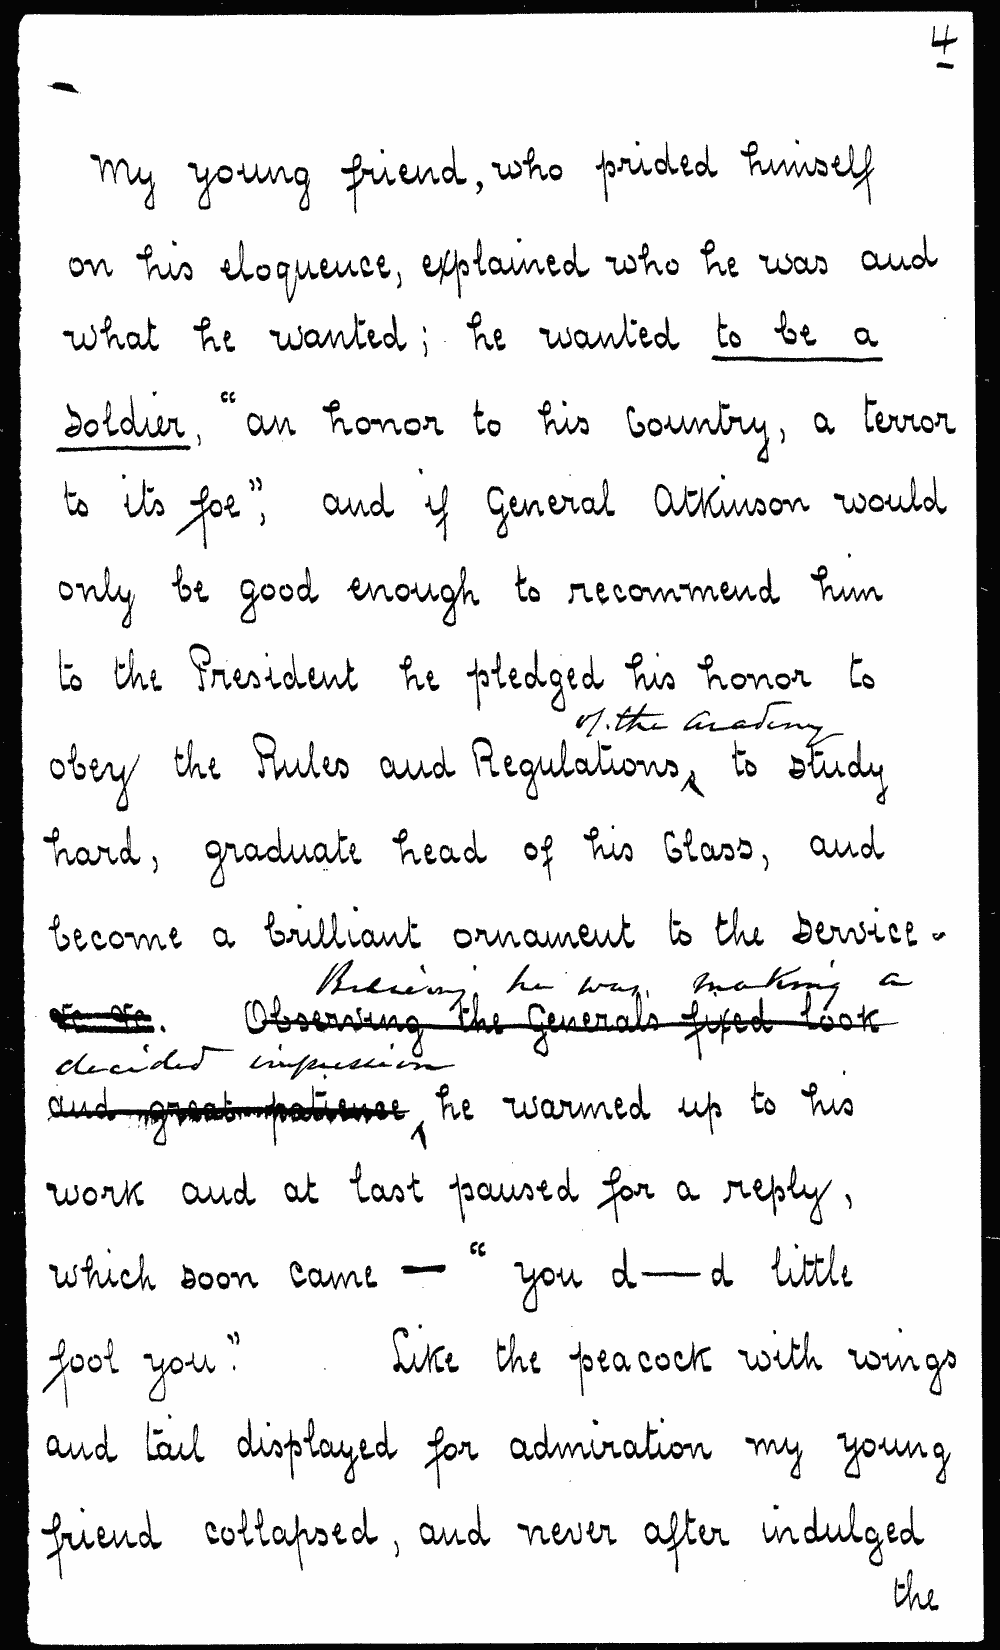 4
My young friend, who prided himself
on his eloquence, explained who he was and
what he wanted; he wanted to be a
soldier, "an honor to his Country, a terror
to its foe", and if General Atkinson would
only be good enough to recommend him
to the President he pledged his honor to
of the Academy
obey the Rules and Regulations, to study
hard, graduate head of his Class, and
become a brilliant ornament to the service -
Believing he was making a
&c &c. Observing the Generals fixed look
decided impression
and great patience, he warmed up to his
work and at last paused for a reply,
which soon came — "you d—d little
fool you". Like the peacock with wings
and tail displayed for admiration my young
friend collapsed, and never after indulged
the